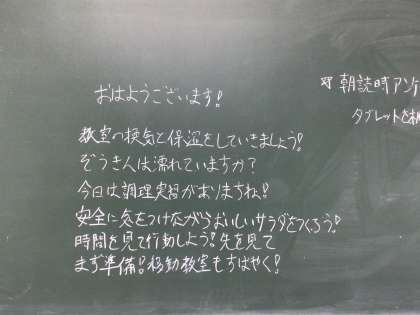 おはようございます!
教室の換気と保湿をしていきましょう!
ぞうきんは濡れていますか?
今日は調理実習がありますね!
安全に気をつけながらおいしいサラダをつくろう!
時間を見て行動しよう!先を見て
まず準備!移動教室もすばやく!
朝読時アンケ
タブレットを